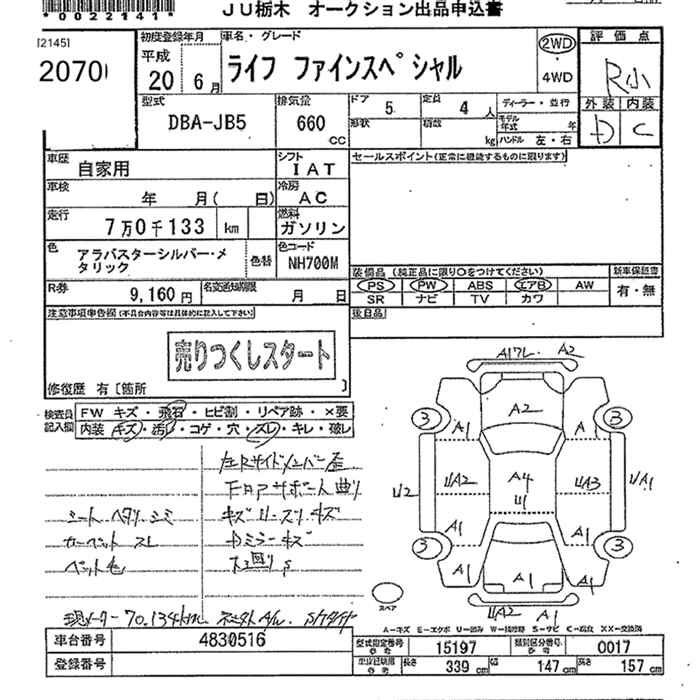 *0022141*
JU栃木 オークション出品申込書
[2145]
2070
初度登録年月
平成
20 6月
車名・グレード
ライフ ファインスペシャル
2WD
4WD
評価点
R小
外装 内装
D C
型式
DBA-JB5
排気量
660
CC
ドア 5
定員 4 人
形状
積載
kg
ディーラー・並行
モデル年式 年
ハンドル 左・右
車歴 自家用
シフト IAT
車検 年 月( 日)
冷房 AC
走行 7万0千133 km
燃料 ガソリン
色 アラバスターシルバー・メタリック
色替
色コード NH700M
R券 9,160円
名変通知期限 月 日
セールスポイント(正常に機能するものに限ります)
装備品 (純正品に限り○をつけてください)
PS PW ABS エアB AW
SR ナビ TV カワ
新車保証書
有・無
後日品
注意事項申告欄(不具合内容等は具体的に記入して下さい)
売りつくしスタート
修復歴 有〔箇所 〕
検査員記入欄
FW キズ・飛石・ヒビ割・リペア跡・×要
内装 キズ・汚レ・コゲ・穴・スレ・キレ・破レ
左Rサイドメンバー歪
ドロアサポート曲り
シート ヘタリ シミ
カーペット スレ
ドミラーキズ
現メーター 70,134km
A17L A2
A2
3 3
A1 A1
UA2 A4 UA3
U2 U1 UA1
A1 A1
3 3
A1 A1 A1
UA2 A1
スペア
A-キズ E-エクボ U-凹み W-補修跡 S-サビ C-腐食 XX-交換済
車台番号 4830516
登録番号
型式指定番号 参考 15197
類別区分番号 参考 0017
長さ 339cm 幅 147cm 高さ 157cm